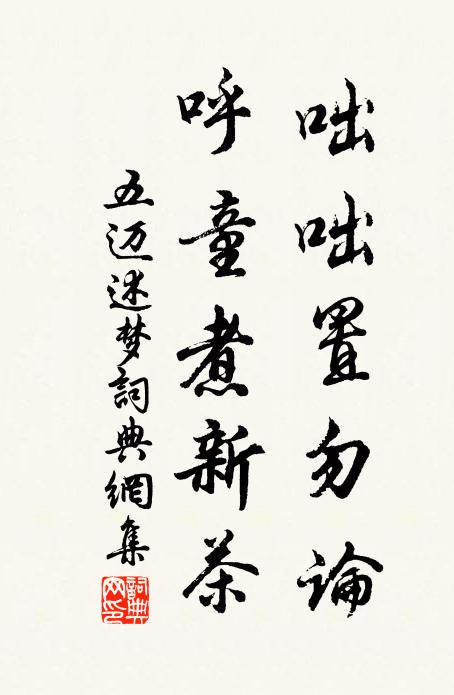 咄咄置勿論
呼童煮新茶
五迈迷梦詞典網集
詞典网印